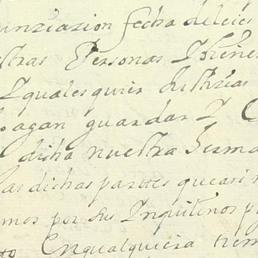 unziazion fecha deleies
stras Personas I bienes
I qualesquier Justizias
hagan guardar I C
dicha nuestra herma
las dichas partes que asi
mos por sus Inquilinos p
to Enqualquiera tiem